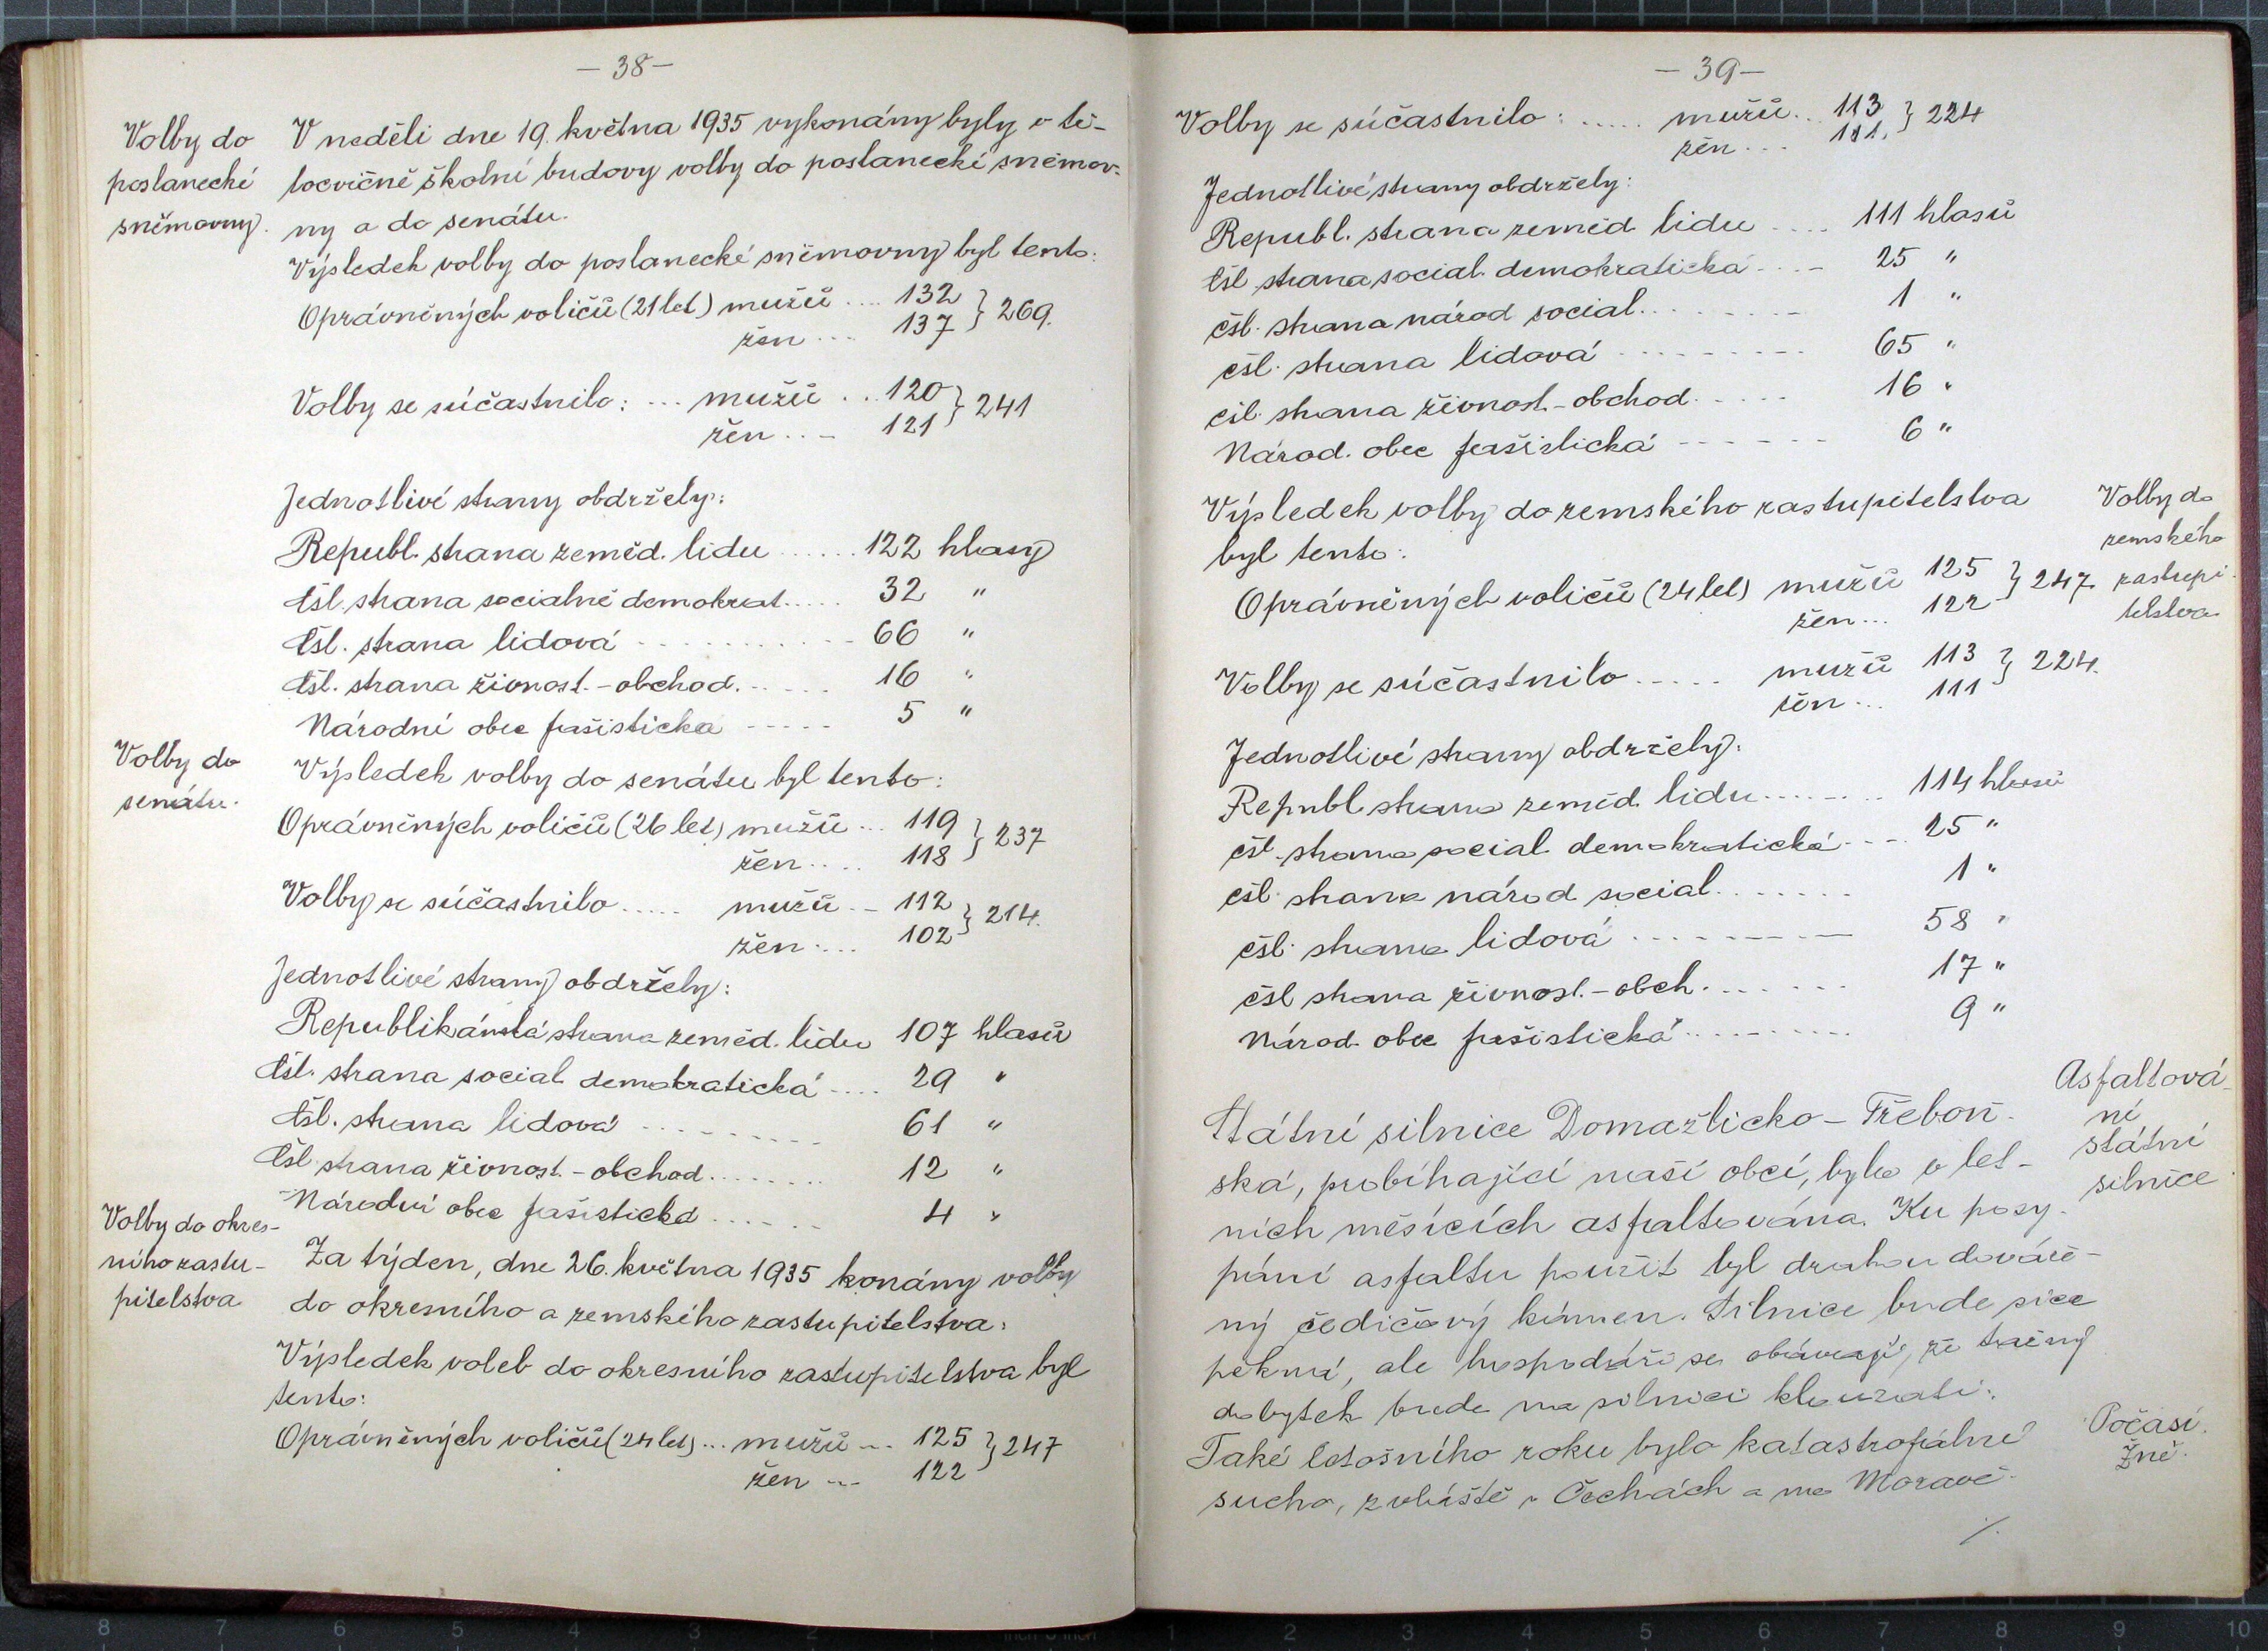 — 38 —
Volby do
poslanecké
sněmovny.
V neděli dne 19. května 1935 vykonány byly v tě-
locvičně školní budovy volby do poslanecké sněmov-
ny a do senátu.
Výsledek volby do poslanecké sněmovny byl tento:
Oprávněných voličů (21 let) mužů .... 132 } 269.
žen ... 137
Volby se súčastnilo: ... mužů ... 120 } 241
žen ... 121
Jednotlivé strany obdržely:
Republ. strana zeměd. lidu ...... 122 hlasy
Čsl. strana socialně demokrat. .... 32 "
Čsl. strana lidová ......... 66 "
Čsl. strana živnost. - obchod. ..... 16 "
Národní obec fašistická ..... 5 "
Volby do
senátu.
Výsledek volby do senátu byl tento:
Oprávněných voličů (26 let) mužů ... 119 } 237
žen .... 118
Volby se súčastnilo ..... mužů ... 112 } 214.
žen .... 102
Jednotlivé strany obdržely:
Republikánská strana zeměd. lidu 107 hlasů
Čsl. strana social demokratická .... 29 "
Čsl. strana lidová ......... 61 "
Čsl strana živnost. - obchod. ....... 12 "
Národní obec fašistická ...... 4 "
Volby do okres-
ního zastu-
pitelstva
Za týden, dne 26. května 1935 konány volby
do okresního a zemského zastupitelstva.
Výsledek voleb do okresního zastupitelstva byl
tento:
Oprávněných voličů (24 let) ... mužů ... 125 } 247
žen ... 122
— 39 —
Volby se súčastnilo: ..... mužů ... 113 } 224
žen ... 111.
Jednotlivé strany obdržely:
Republ. strana zeměd. lidu .... 111 hlasů
Čsl. strana social. demokratická .... 25 "
čsl. strana národ social. ....... 1 "
čsl. strana lidová ......... 65 "
čsl. strana živnost. - obchod. ..... 16 "
Národ. obec fašistická ...... 6 "
Výsledek volby do zemského zastupitelstva
byl tento:
Volby do
zemského
zastupi-
telstva
Oprávněných voličů (24 let) mužů 125 } 247
žen ... 122
Volby se súčastnilo ..... mužů 113 } 224.
žen ... 111
Jednotlivé strany obdržely:
Republ strana zeměd. lidu ....... 114 hlasů
čsl. strana social. demokratická .... 25 "
čsl. strana národ social. ...... 1 "
čsl. strana lidová ......... 58 "
čsl strana živnost. - obch. ...... 17 "
Národ. obec fašistická ......... 9 "
Asfaltová-
ní
státní
silnice
Státní silnice Domažlicko - Třeboň-
ská, probíhající naší obcí, byla v let-
ních měsících asfaltována. Ku posy-
pání asfaltu použit byl draho dováže-
ný čedičový kámen. Silnice bude sice
pěkná, ale hospodáři se obávají, že tažný
dobytek bude na silnici klouzati.
Počasí.
Žně.
Také letošního roku bylo katastrofální
sucho, zvláště v Čechách a na Moravě.
/.
8 7 6 5 4 3 2 1
1 2 3 4 5 6 7 8 9 10